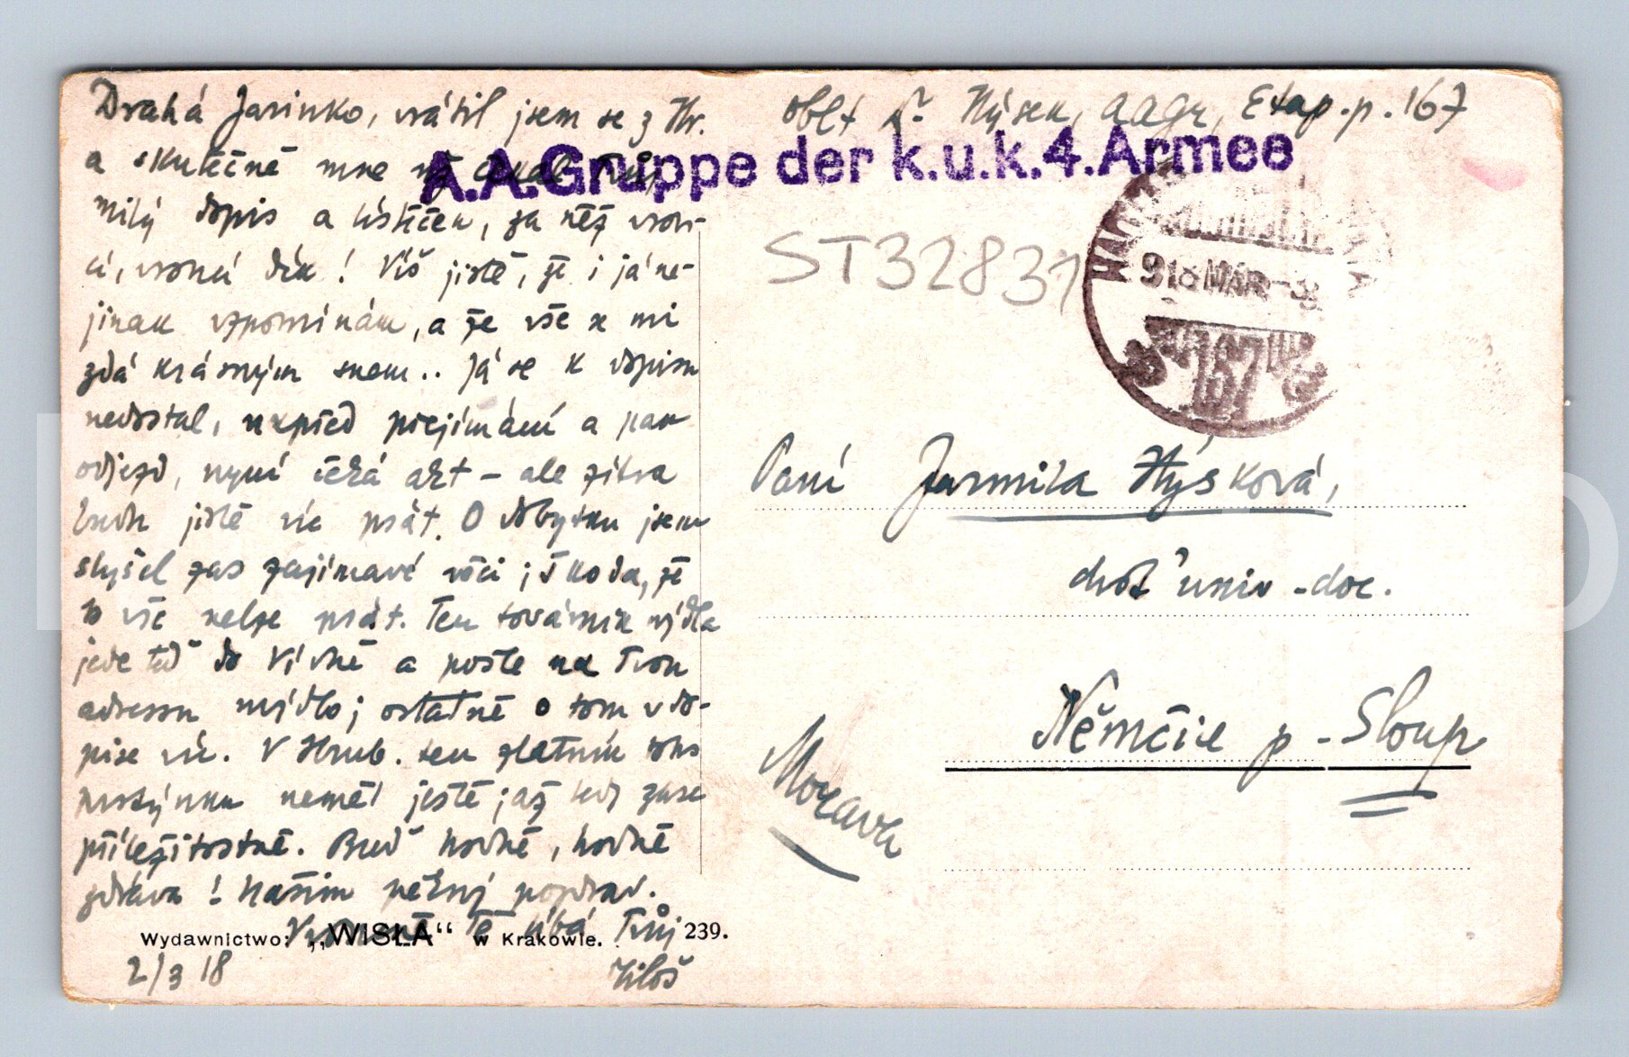 Drahá Jarinko, vrátil jsem se z Hr.
a skutečně mne již čekal Tvůj
milý dopis a lísteček, za něž vrou-
cí, vroucí dík! Víš jistě, že i já ne-
jinak vzpomínám, a že vše se mi
zdá krásným snem.. Já se k dopisu
nedostal, napřed přejímání a pak
odjezd, nyní čeká akt - ale zítra
budu jistě víc psát. O dobytku jsem
slyšel zas zajímavé věci; škoda, že
to vše nelze psát. Ten továrník mýdla
jede teď do Vídně a pošle na Tvou
adressu mýdlo; ostatně o tom v do-
pise víc. V Hrub. ten zlatník toho
prstýnku neměl ještě; až tedy zase
příležitostně. Buď hodně, hodně
zdráva! Našim pěkný pozdrav.
Vroucně Tě líbá Tvůj
Miloš
2/3 18
Wydawnictwo: „WISŁA“ w Krakowie.
239.
Oblt Dr. Hýsek, AAGr, Etap.p. 167
A.A.Gruppe der k.u.k. 4. Armee
ST32831
918 MÄR - 3
167
Paní Jarmila Hýsková,
choť univ-doc.
Němčice p. Sloup
Morava